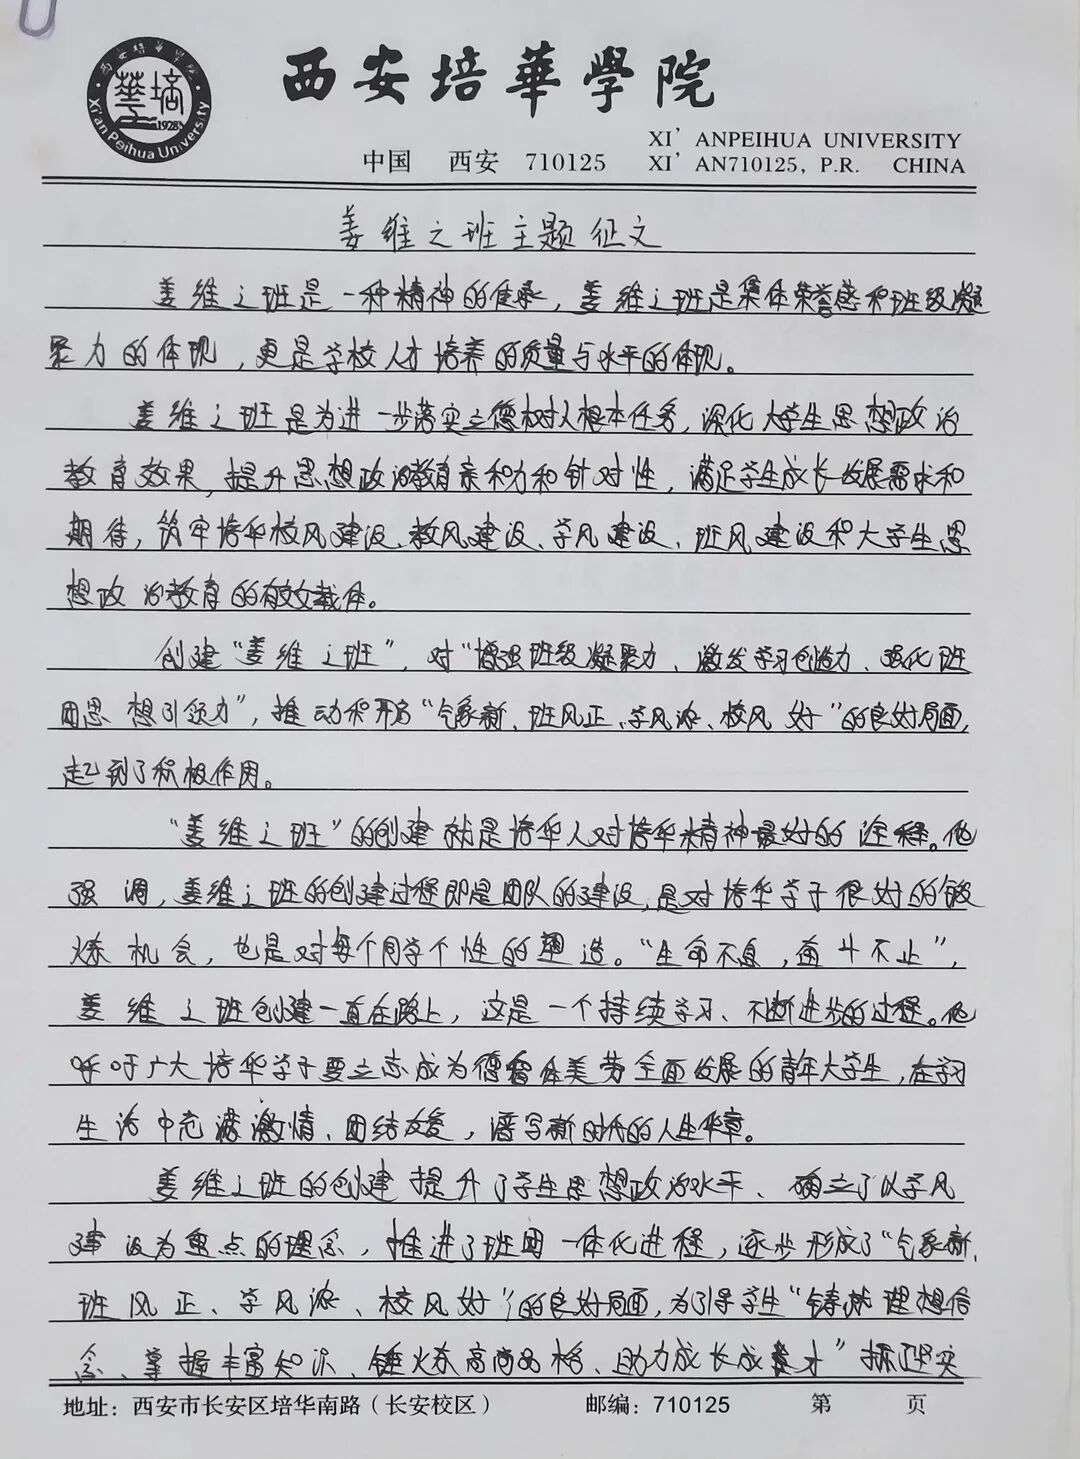 西安培華學院
西安培華學院
華培
1928
Xi'an Peihua University
XI' ANPEIHUA UNIVERSITY
中国 西安 710125 XI' AN710125, P.R. CHINA
姜维之班主题征文
姜维之班是一种精神的传承，姜维之班是集体荣誉感和班级凝
聚力的体现，更是学校人才培养的质量与水平的体现。
姜维之班是为进一步落实立德树人根本任务，深化大学生思想政治
教育效果，提升思想政治教育亲和力和针对性，满足学生成长发展需求和
期待，筑牢培华校风建设、教风建设、学风建设、班风建设和大学生思
想政治教育的有效载体。
创建“姜维之班”，对“增强班级凝聚力、激发学习创造力、强化班
团思想引领力”，推动和形成“气象新、班风正、学风浓、校风好”的良好局面，
起到了积极作用。
“姜维之班”的创建就是培华人对培华精神最好的诠释。他
强调，姜维之班的创建过程即是团队的建设，是对培华学子很好的锻
炼机会，也是对每个同学个性的塑造。“生命不息，奋斗不止”，
姜维之班创建一直在路上，这是一个持续学习、不断进步的过程。他
呼吁广大培华学子要立志成为德智体美劳全面发展的青年大学生，在学习
生活中充满激情、团结友爱，谱写新时代的人生华章。
姜维之班的创建提升了学生思想政治水平、确立了以学风
建设为重点的理念，推进了班团一体化进程，逐步形成了“气象新、
班风正、学风浓、校风好”的良好局面，为引导学生“铸就理想信
念、掌握丰富知识、锤炼高尚品格、助力成长成才”打下坚实
地址：西安市长安区培华南路（长安校区） 邮编：710125 第 页